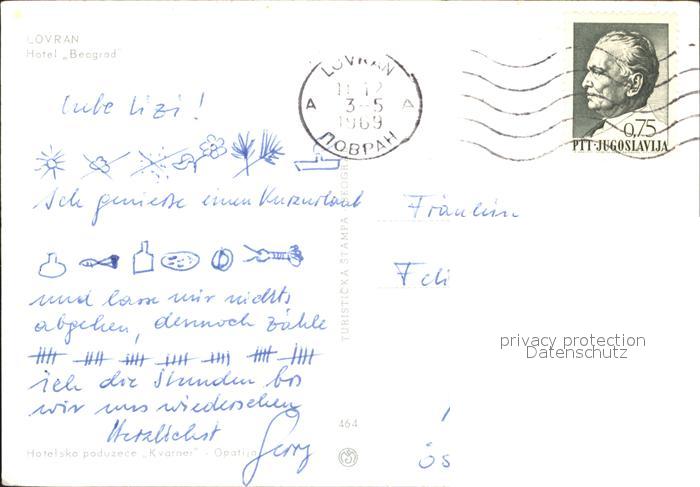 LOVRAN
Hotel „Beograd"
LOVRAN
11 12
A 3-5 A
1969
ЛОВРАН
0,75
PTT-JUGOSLAVIJA
Liebe Lizi!
Ich genieße einen Kurzurlaub
und lasse mir nichts
abgehen, dennoch zähle
ich die Stunden bis
wir uns wiedersehen
Herzlichst
Georg
Fräulein
Feli
privacy protection
Datenschutz
ÖS
TURISTIČKA ŠTAMPA BEOGRAD
464
Hotelsko poduzeće „Kvarner" - Opatija